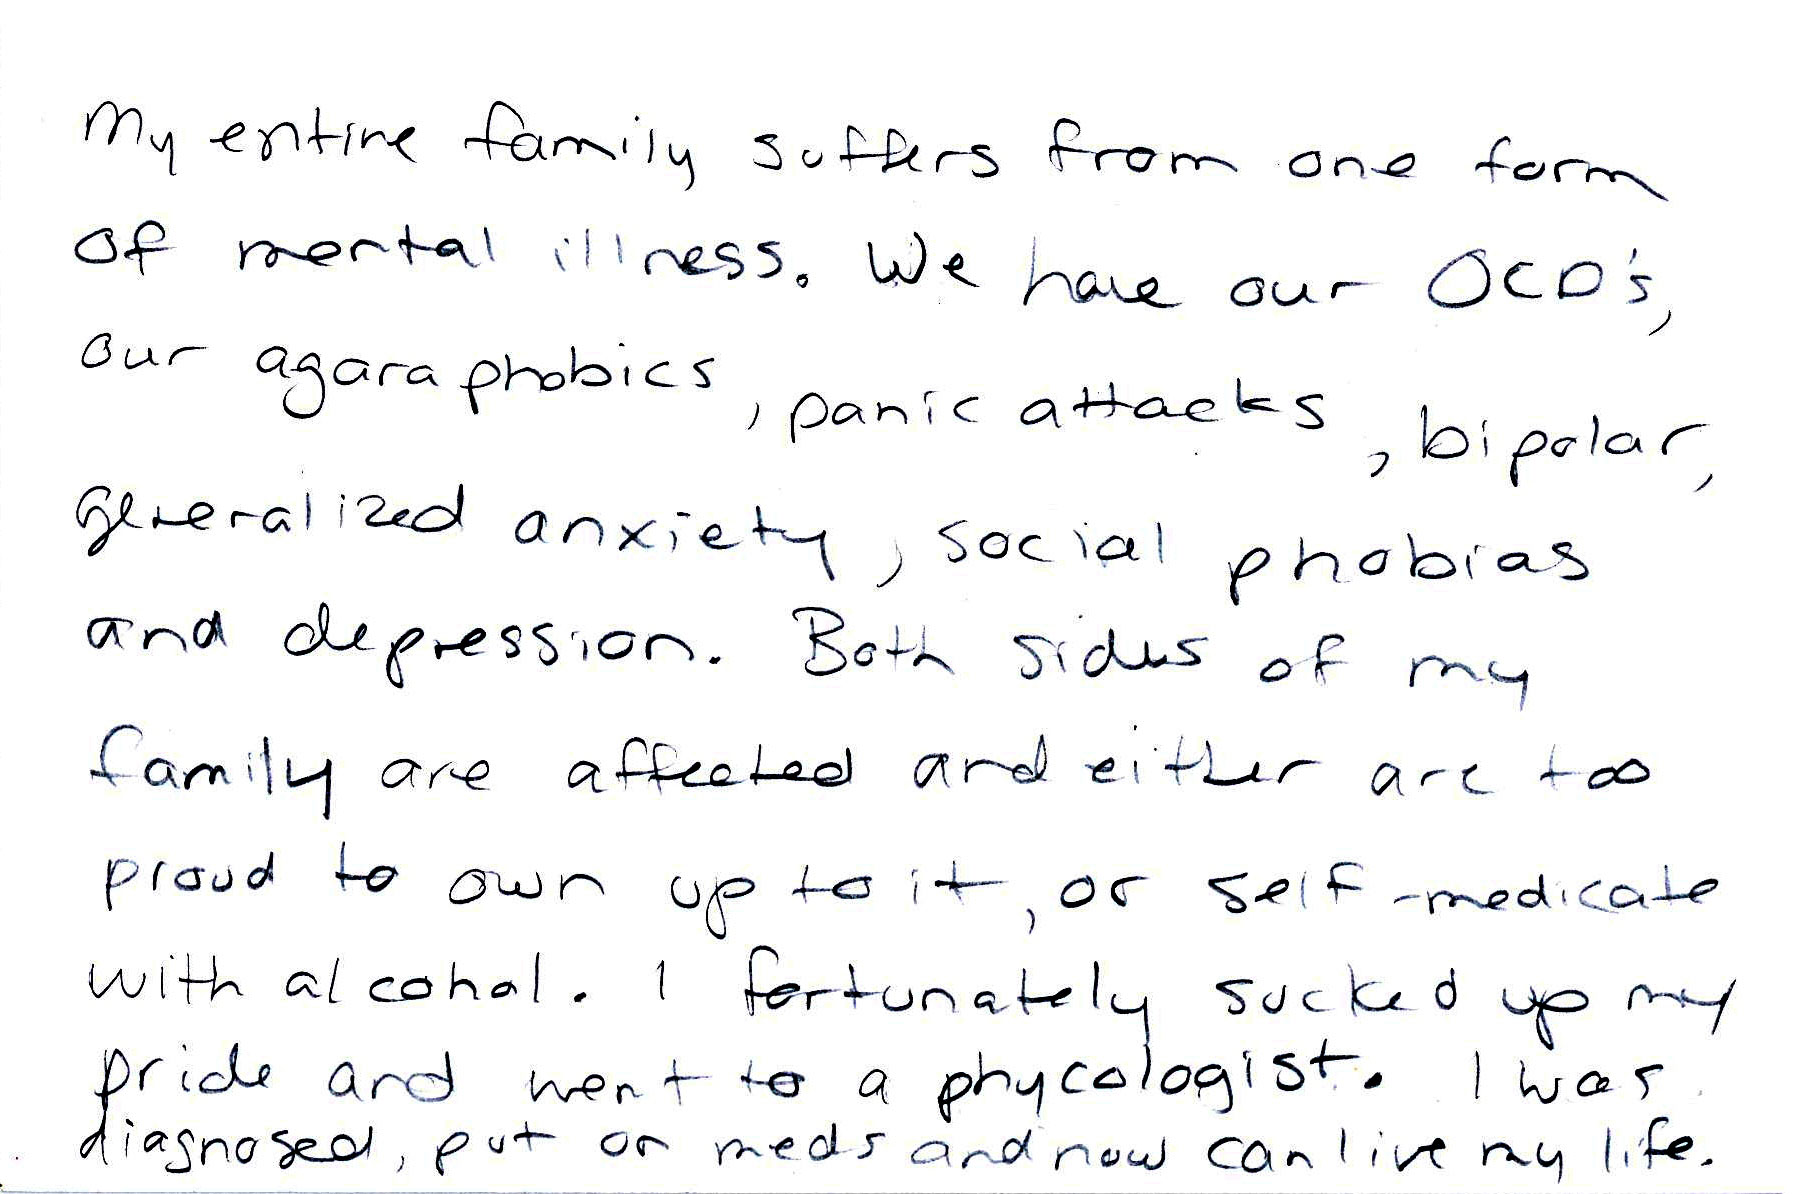 My entire family suffers from one form
of mental illness. We have our OCD's,
our agaraphobics, panic attacks, bipolar,
generalized anxiety, social phobias
and depression. Both sides of my
family are affected and either are too
proud to own up to it, or self-medicate
with alcohol. I fortunately sucked up my
pride and went to a phycologist. I was
diagnosed, put on meds and now can live my life.